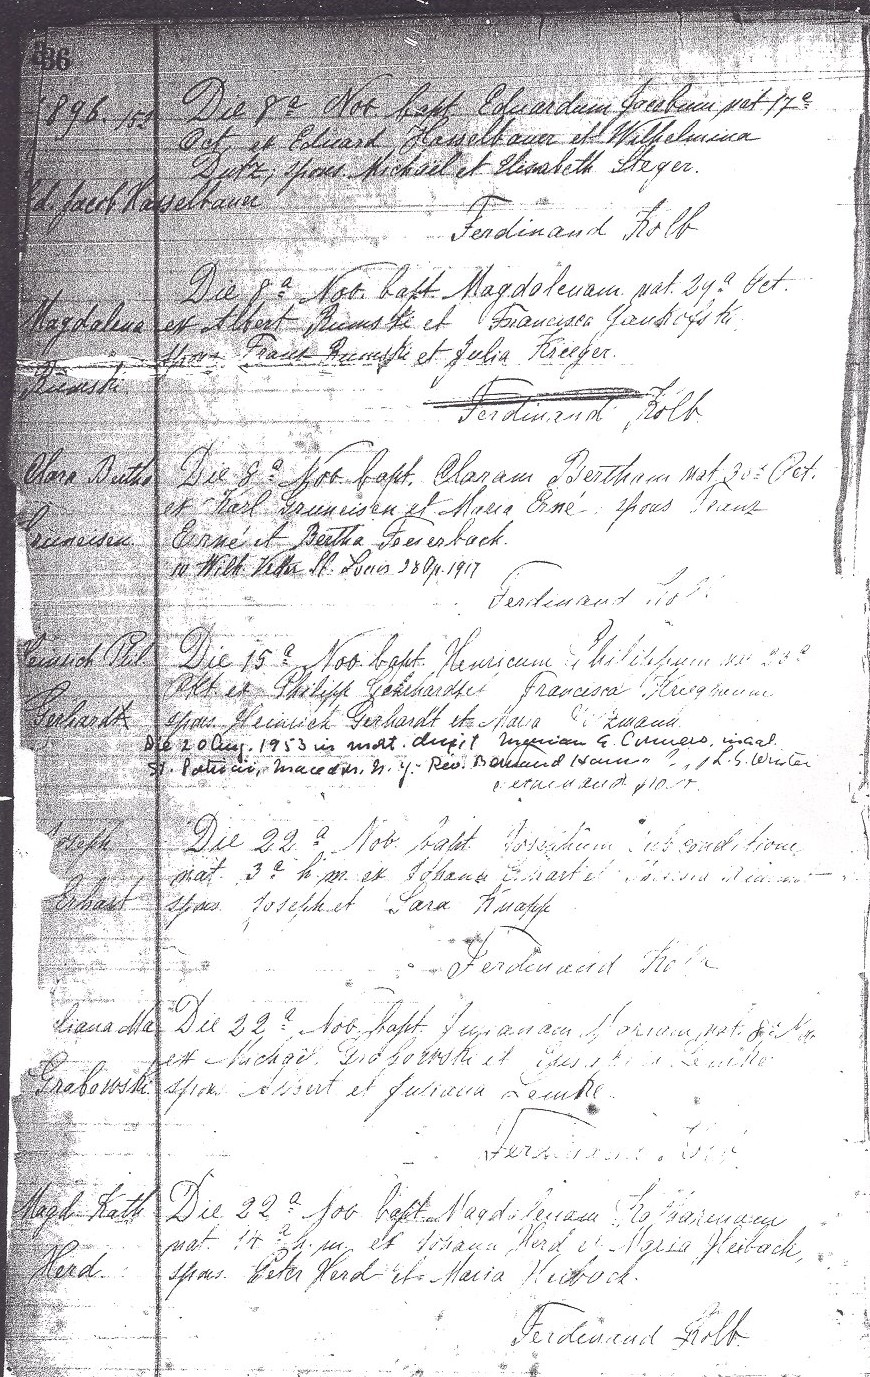 36
1896. Die 8ª Nov. bapt. Eduardum Jacobum nat 17ª
Oct ex Eduard Hasselbauer et Wilhelmina
Dutz, spons. Michael et Elisabeth Steger.
Ed. Jacob Hasselbauer
Ferdinand Kolb
Die 8ª Nov. bapt. Magdalenam nat. 29ª Oct.
Magdalena ex Albert Rumski et Francisca
spons Franz Rumski et Julia Krieger.
Rumski
Ferdinand Kolb
Clara Bertha Die 8ª Nov. bapt. Claram Bertham nat 30ª Oct.
ex Karl Gruneisen et Maria Erné spons Franz
Gruneisen Erné et Bertha Feierbach.
Wilh. St. Louis 28 Ap. 1917
Ferdinand Kolb
Heinrich Phil. Die 15ª Nov. bapt. Henricum Philippum
Okt ex Philipp Gerhardt et Francisca
Gerhardt spons. Heinrich Gerhardt et Maria
Die 20 Aug. 1953 in mat. duxit
St. Patricii, Macedon, N.Y. Rev. Bernard
Ferdinand Kolb
Joseph Die 22ª Nov. bapt Josephum sub conditione
nat. 3ª h.m. ex Johann Erhart et
Erhart spons Joseph et Sara Knapp
Ferdinand Kolb
Juliana Ma. Die 22ª Nov. bapt. Julianam Mariam nat. 8ª Nov.
ex Michael Grabowski et Lemke
Grabowski spons. Albert et Juliana Lemke.
Ferdinand Kolb
Magd. Kath Die 22ª Nov bapt. Magdalenam Katharinam
nat. 14ª h.m. ex Johann Herd et Maria Heibach,
Herd. spons. Peter Herd et Maria Heibach.
Ferdinand Kolb